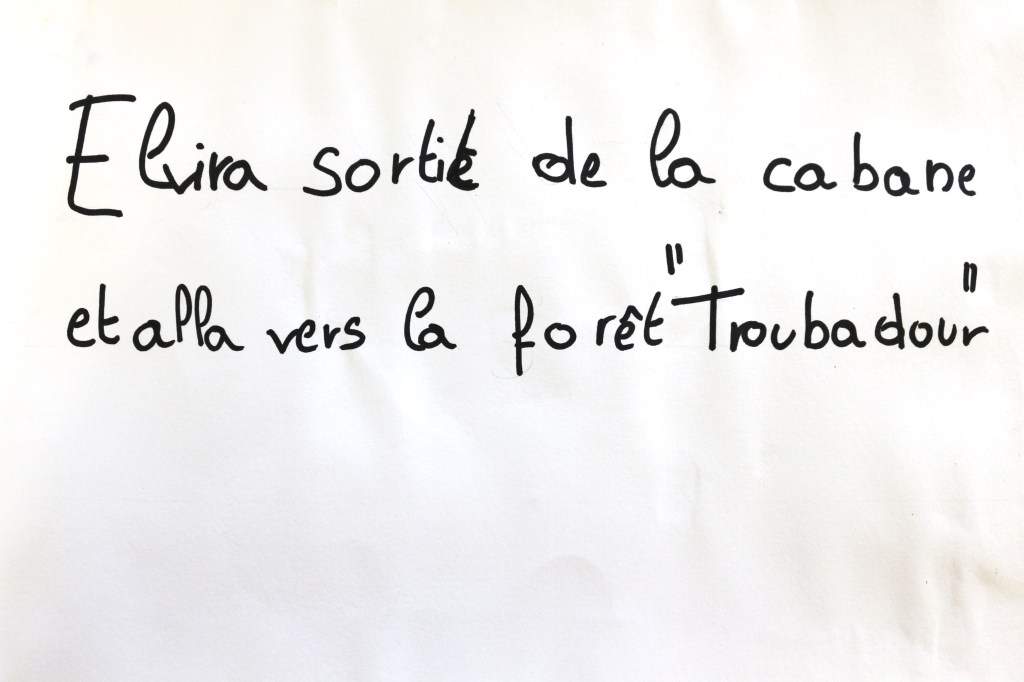 Elvira sortit de la cabane
et alla vers la forêt "Troubadour"